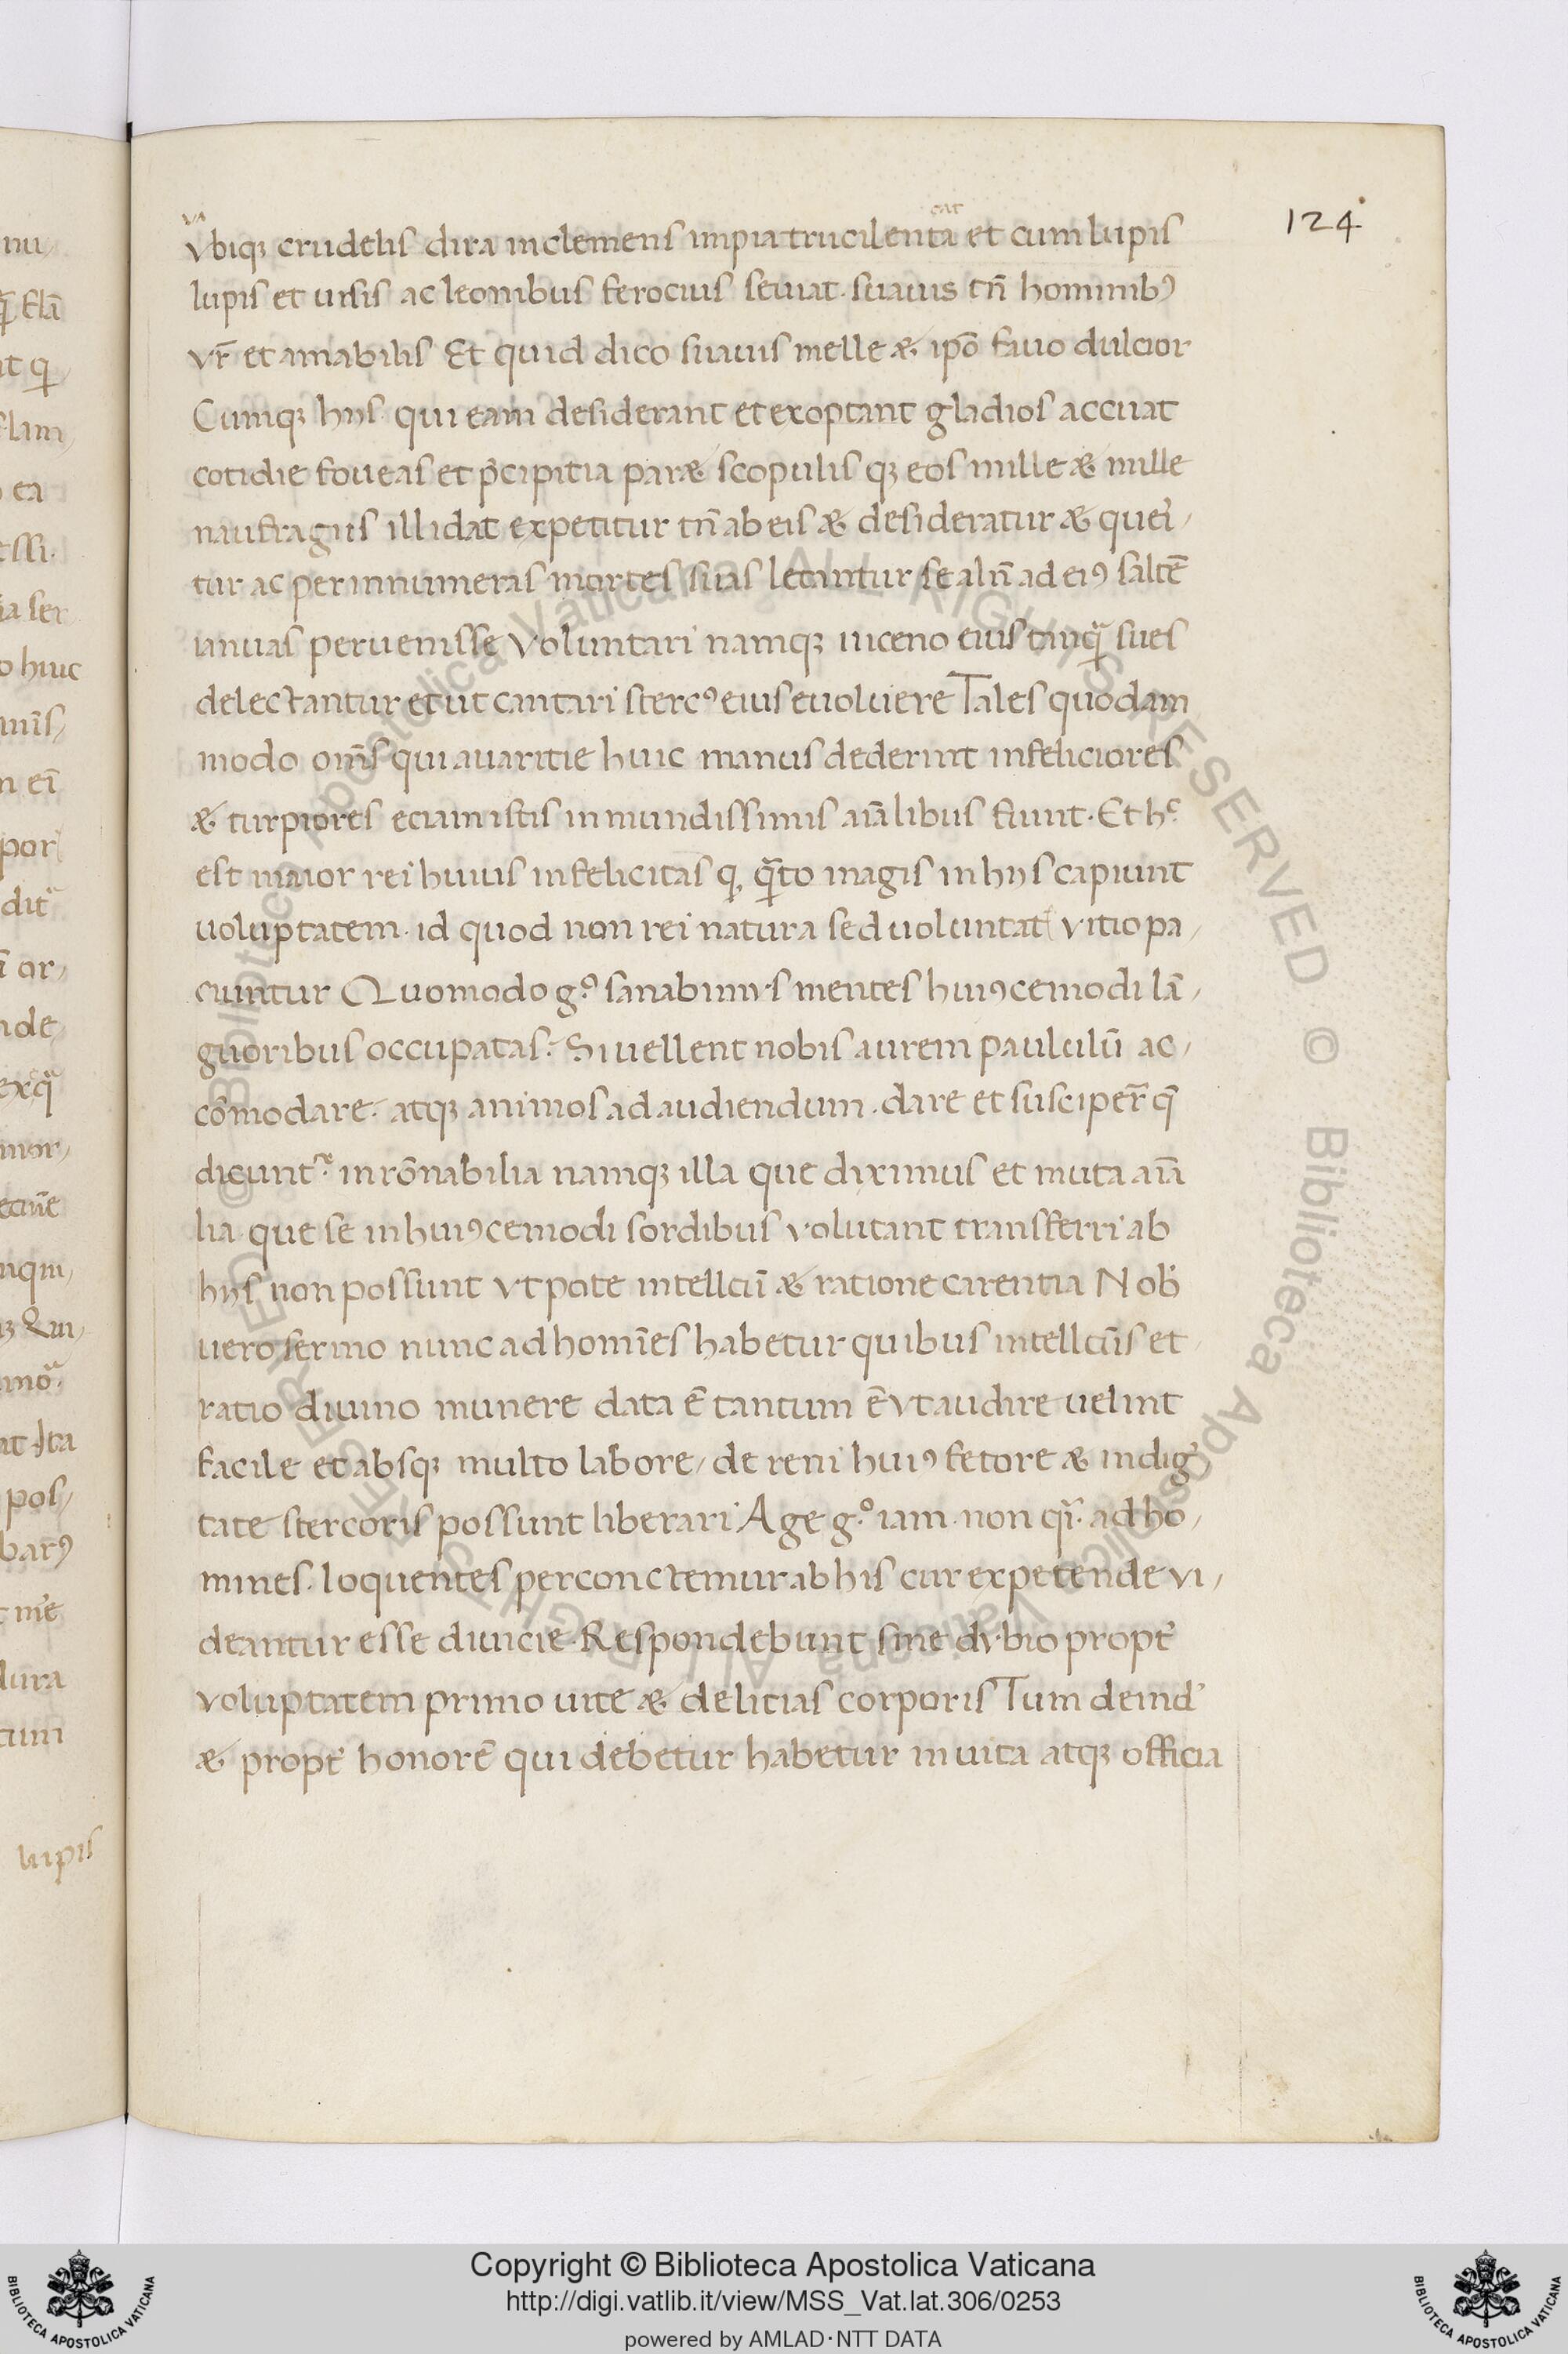 124
Vbiqꝫ crudelis dira inclemens impia trucilenta et cum lupis
lupis et ursis ac leonibus ferocius seuiat. suauis tn̄ hominibꝰ
vr̄ et amabilis Et quid dico suauis melle & ip̄o fauo dulcior
Cumqꝫ hijs qui eam desiderant et exoptant gladios accuat
cotidie foueas et p̄cipitia par& scopulis qꝫ eos mille & mille
naufragiis illidat expetitur tn̄ ab eis & desideratur & quei᷑/
tur ac per innumeras mortes suas letantur se alīn ad eiꝰ saltē
ianuas peruenisse Voluntari namqꝫ in ceno eius tanqᷓ sues
delectantur et ut cantari stercꝰ eius euoluere Tales quodam
modo om̄s qui auaritie huic manus dederint infeliciores
& turpiores eciam istis inmundissimis aīalibus fiunt. Et hᶜ
est maior rei huius infelicitas ꝙ qᷓto magis in hijs capiunt
uoluptatem. id quod non rei natura sed uoluntat vitio pa/
ciuntur Quomodo g° sanabimus mentes huiꝰcemodi lā/
guoribus occupatas. Si uellent nobis aurem paululū ac/
cōmodare. atqꝫ animos ad audiendum. dare et susciper̄ q̄
dicunt᷑. inrōnabilia namqꝫ illa que diximus et muta aīa
lia que se in huiꝰcemodi sordibus volutant transferri ab
hijs non possunt vt pote intellcū & ratione carentia Nob᷑
uero sermo nunc ad homīes habetur quibus intellcūs et
ratio diuino munere data ē tantum ē vt audire uelint
facile et absqꝫ multo labore/ de reni huiꝰ fetore & indig᷑
tate stercoris possunt liberari Age g° iam non qͥ. ad ho/
mines. loquentes percontemur ab his cur expetende vi/
deantur esse diuicie. Respondebunt sine dubio propt᷑
voluptatem primo uite & delitias corporis Tum deind᷑
& propt᷑ honorē qui debetur habetur inuita atqꝫ officia
lupis
Copyright © Biblioteca Apostolica Vaticana
http://digi.vatlib.it/view/MSS_Vat.lat.306/0253
powered by AMLAD·NTT DATA
BIBLIOTECA APOSTOLICA VATICANA
BIBLIOTECA APOSTOLICA VATICANA